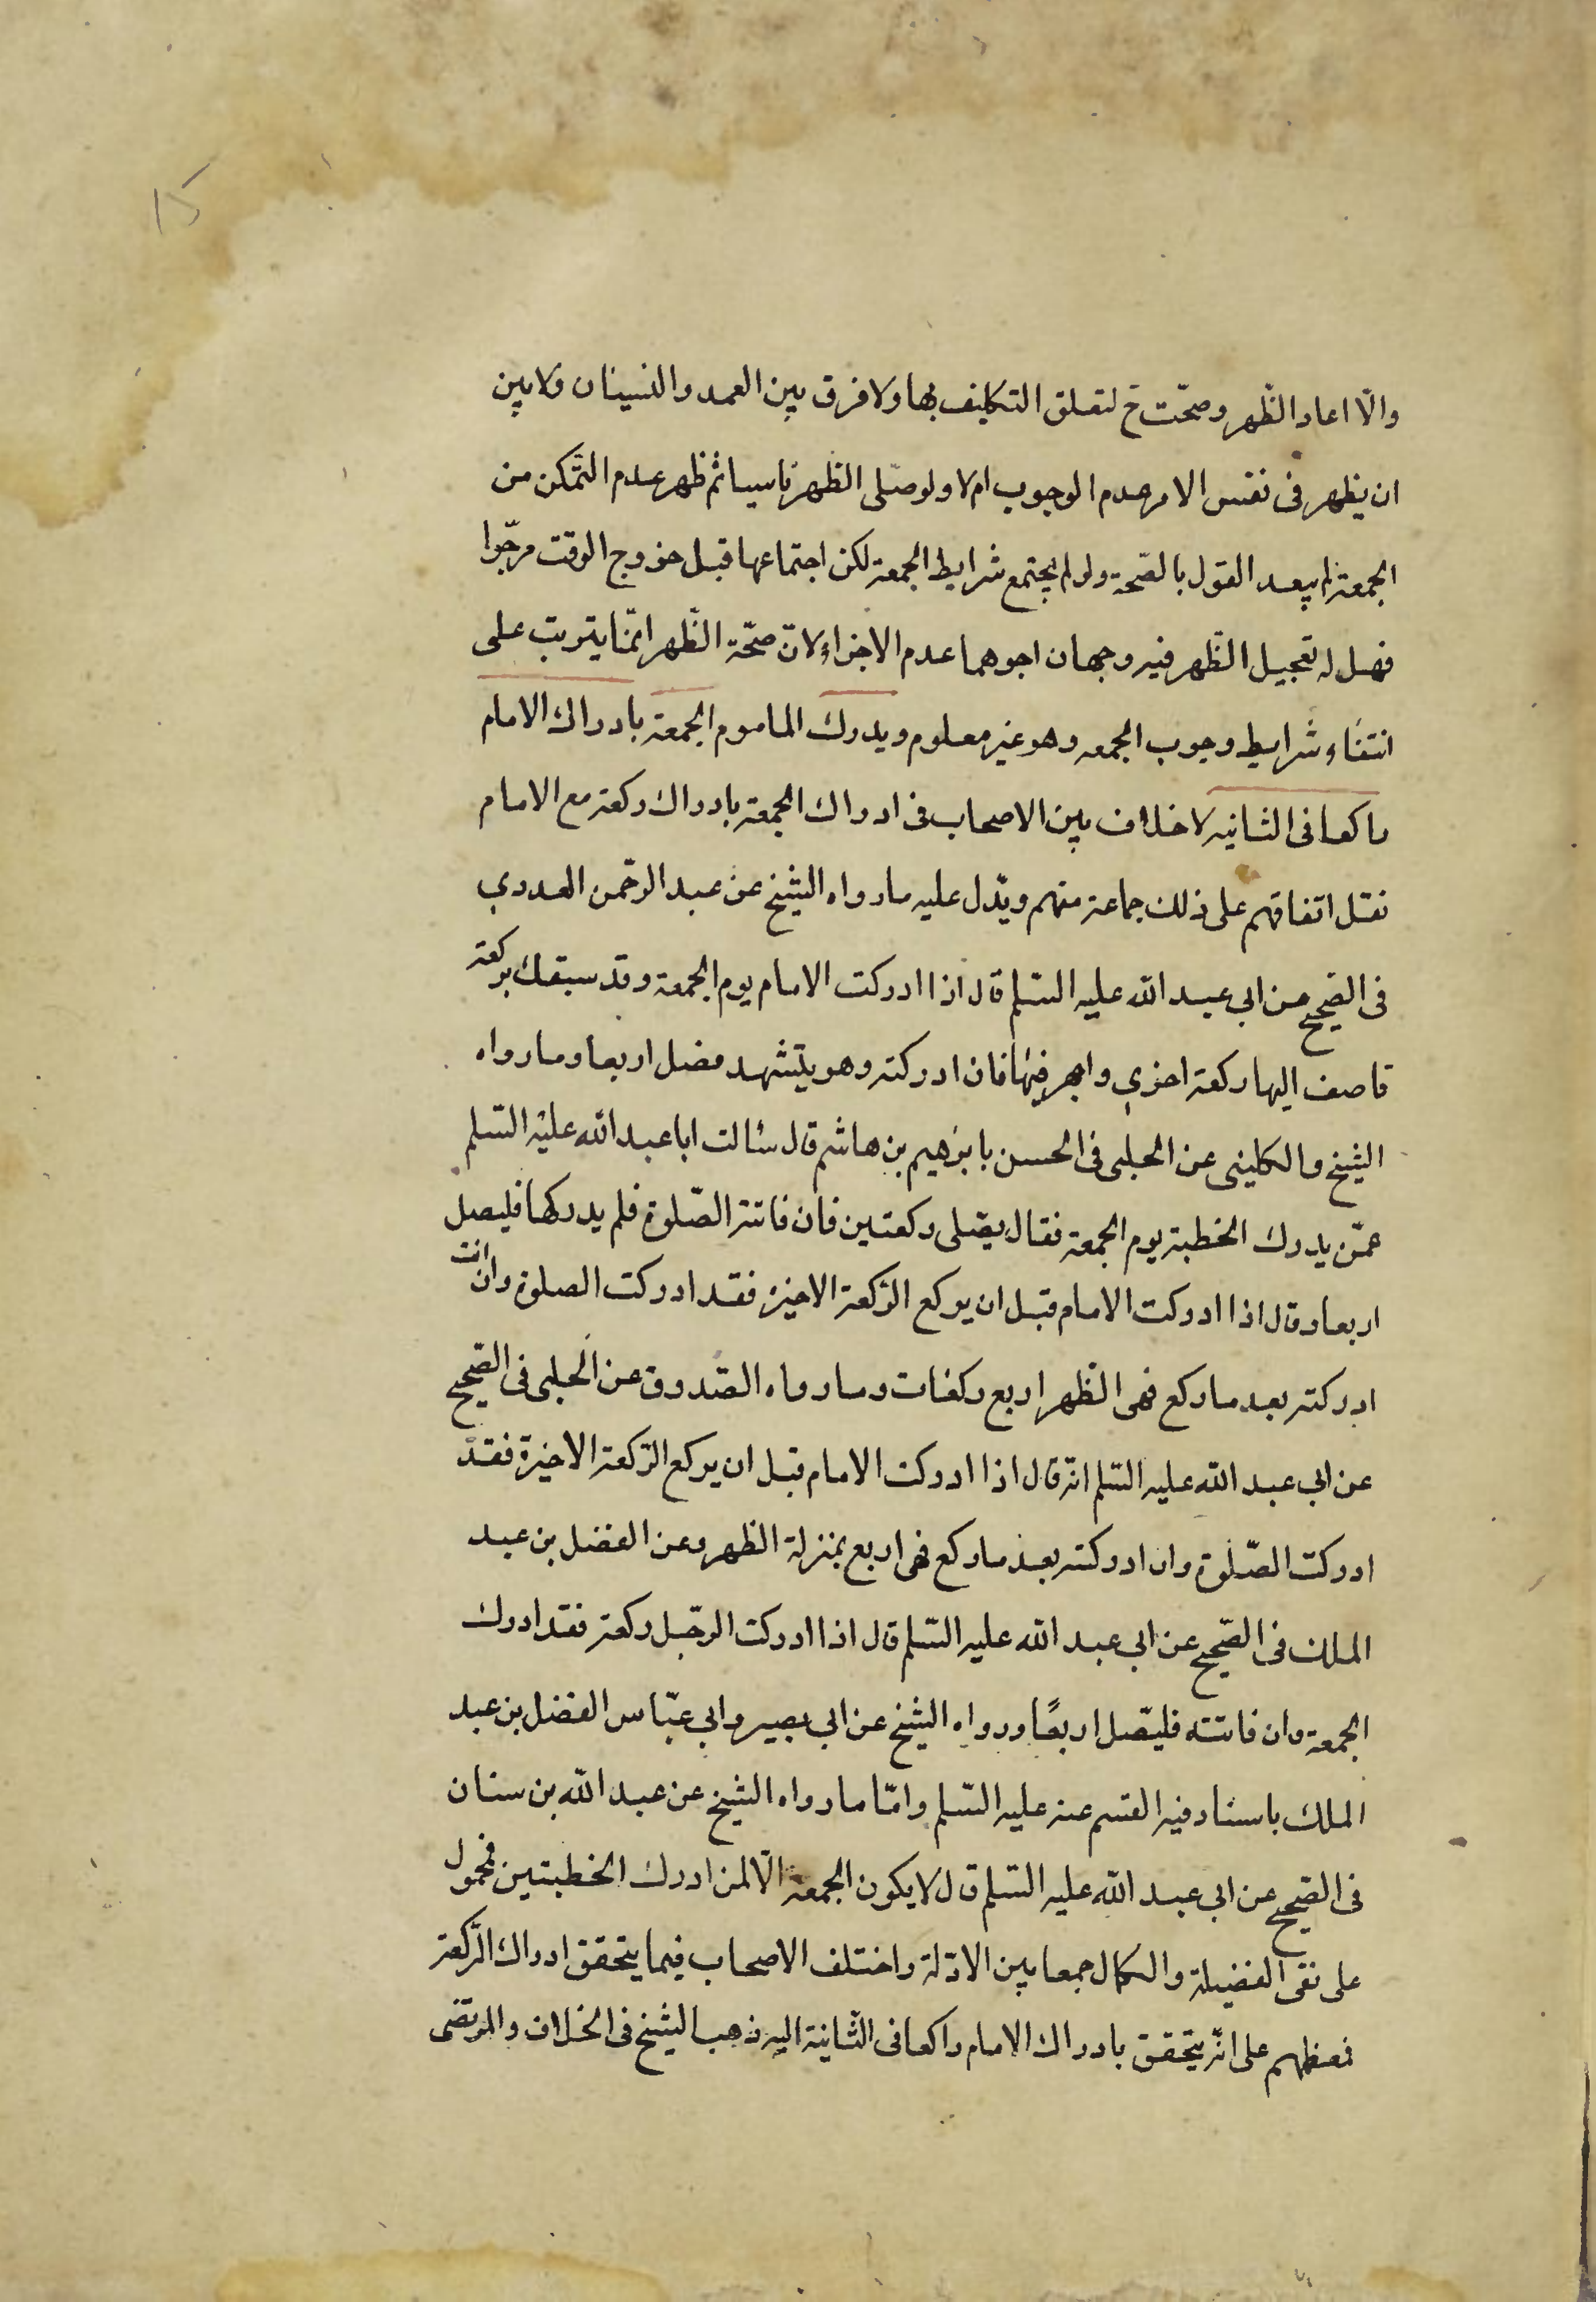 15
والّا اعاد الظّهر وصحّت ح لتعلق التكليف بها ولا فرق بين العمد والنسيان ولا بين
ان يظهر فى نفس الامر عدم الوجوب ام لا ولو صلّى الظهر ناسيا ثم ظهر عدم التّمكن من
الجمعة لم يبعد القول بالصّحة ولو لم يجتمع شرايط الجمعة لكن اجتماعها قبل خروج الوقت مرجّوا
فهل له تعجيل الظّهر فيه وجهان اجوهما عدم الاجزاء لانّ صحّة الظّهر انّما يترتب على
انتفاء شرايط وجوب الجمعه وهو غير معلوم ويدرك الماموم الجمعة بادراك الامام
راكعا فى الثانيه لا خلاف بين الاصحاب فى ادراك الجمعة بادراك ركعة مع الامام
نقل اتفاقهم على ذلك جماعة منهم ويّدل عليه ما رواه الشيخ عن عبد الرحّمن العددي
فى الصّحيح عن ابي عبد الله عليه السّلم قال اذا ادركت الامام يوم الجمعة وقد سبقك بركعة
فاصف اليها ركعة اخري واجهر فيها فان ادركته وهو يتّشهد فصل اربعا وما رواه
الشيخ والكلينى عن الحلبى فى الحسن بابرهيم بن هاشم قال سئالت ابا عبد الله عليه السّلم
عمّن يدرك الخطبة يوم الجمعة فقال يصّلى ركعتين فان فاتته الصّلوة فلم يدركها فليصل
اربعا وقال اذا ادركت الامام قبل ان يركع الرّكعة الاخيرة فقد ادركت الصلوة وان انت
ادركته بعد ما ركع فهى الظّهر اربع ركعات وما رواه الصّدوق عن الحلبى فى الصّحيح
عن ابي عبد الله عليه السّلم انّه قال اذا ادركت الامام قبل ان يركع الرّكعة الاخيرة فقد
ادركت الصّلوة وان ادركته بعد ما ركع فهى اربع بمنزلة الظهر وعن الفضل بن عبد
الملك فى الصّحيح عن ابي عبد الله عليه السّلم قال اذا ادركت الرجّل ركعة فقد ادرك
الجمعة وان فاتته فليصّل اربعًا ورواه الشيخ عن ابي بصير وابي عبّاس الفضل بن عبد
الملك باسناد فيه القسم عنه عليه السّلم وامّا ما رواه الشيخ عن عبد الله بن سنان
فى الصّحيح عن ابي عبد الله عليه السّلم قال لا يكون الجمعة الّا لمن ادرك الخطبتين فمحمول
على نفى الفضيلة والكمال جمعا بين الادّلة واختلف الاصحاب فيما يتحقق ادراك الرّكعة
فمعظمهم على انّه يتّحقق بادراك الامام راكعا فى الثّانية اليه ذهب الشيخ فى الخلاف والمرتضى